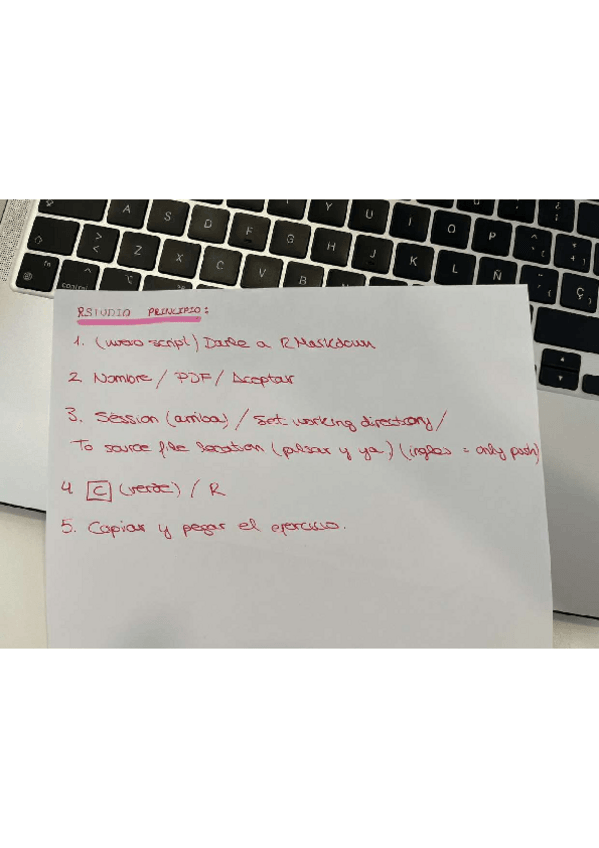 A S D F G H J K L Ñ
Y U I O P
> < Z X C V B
fn control Ç
RSTUDIO PRINCIPIO:
1. (nuevo script) Darle a R Markdown
2 Nombre / PDF / Aceptar
3. Session (arriba) / Set working directory /
To source file location (pulsar y ya) (ingles = only push)
4 C (verde) / R
5. Copiar y pegar el ejercicio.